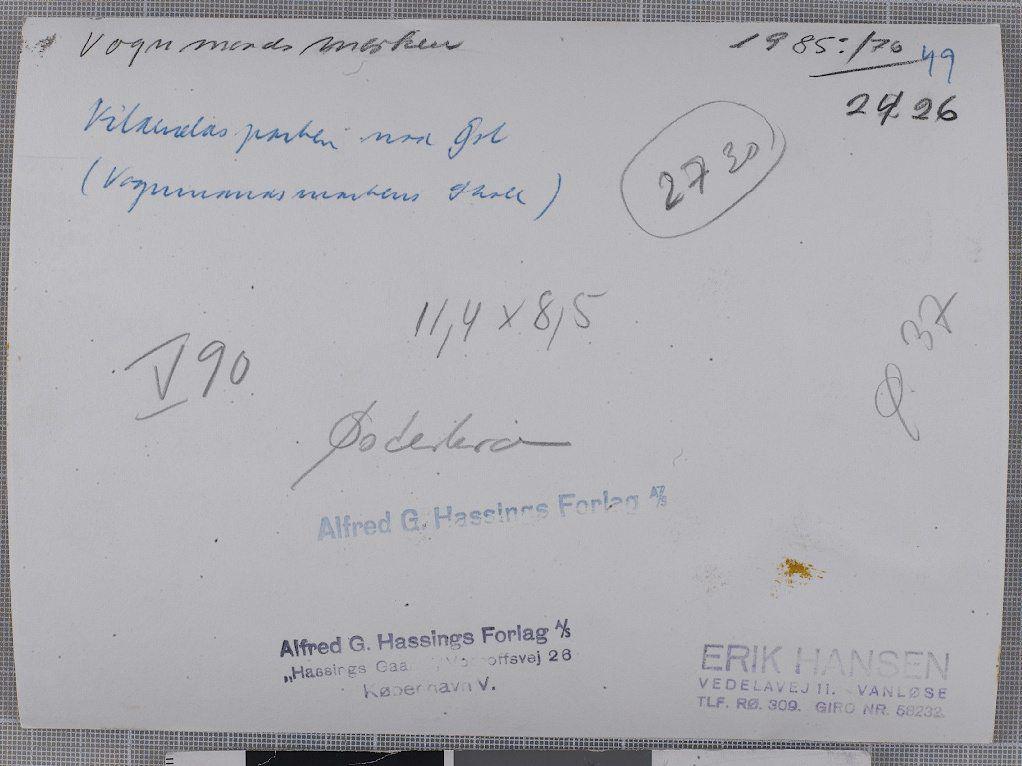 Vognmandsmarken
1985:/70
49
24 26
Vildandsparken mod Øst
(Vognmandsmarkens Skole)
27 30
11,4 x 8,5
V 90
Ø. 37
Østerbro
Alfred G. Hassings Forlag A/S
Alfred G. Hassings Forlag A/S
„Hassings offsvej 26
København V.
ERIK HANSEN
VEDELAVEJ 11. VANLØSE
TLF. RØ. 309. GIRO NR. 58232.